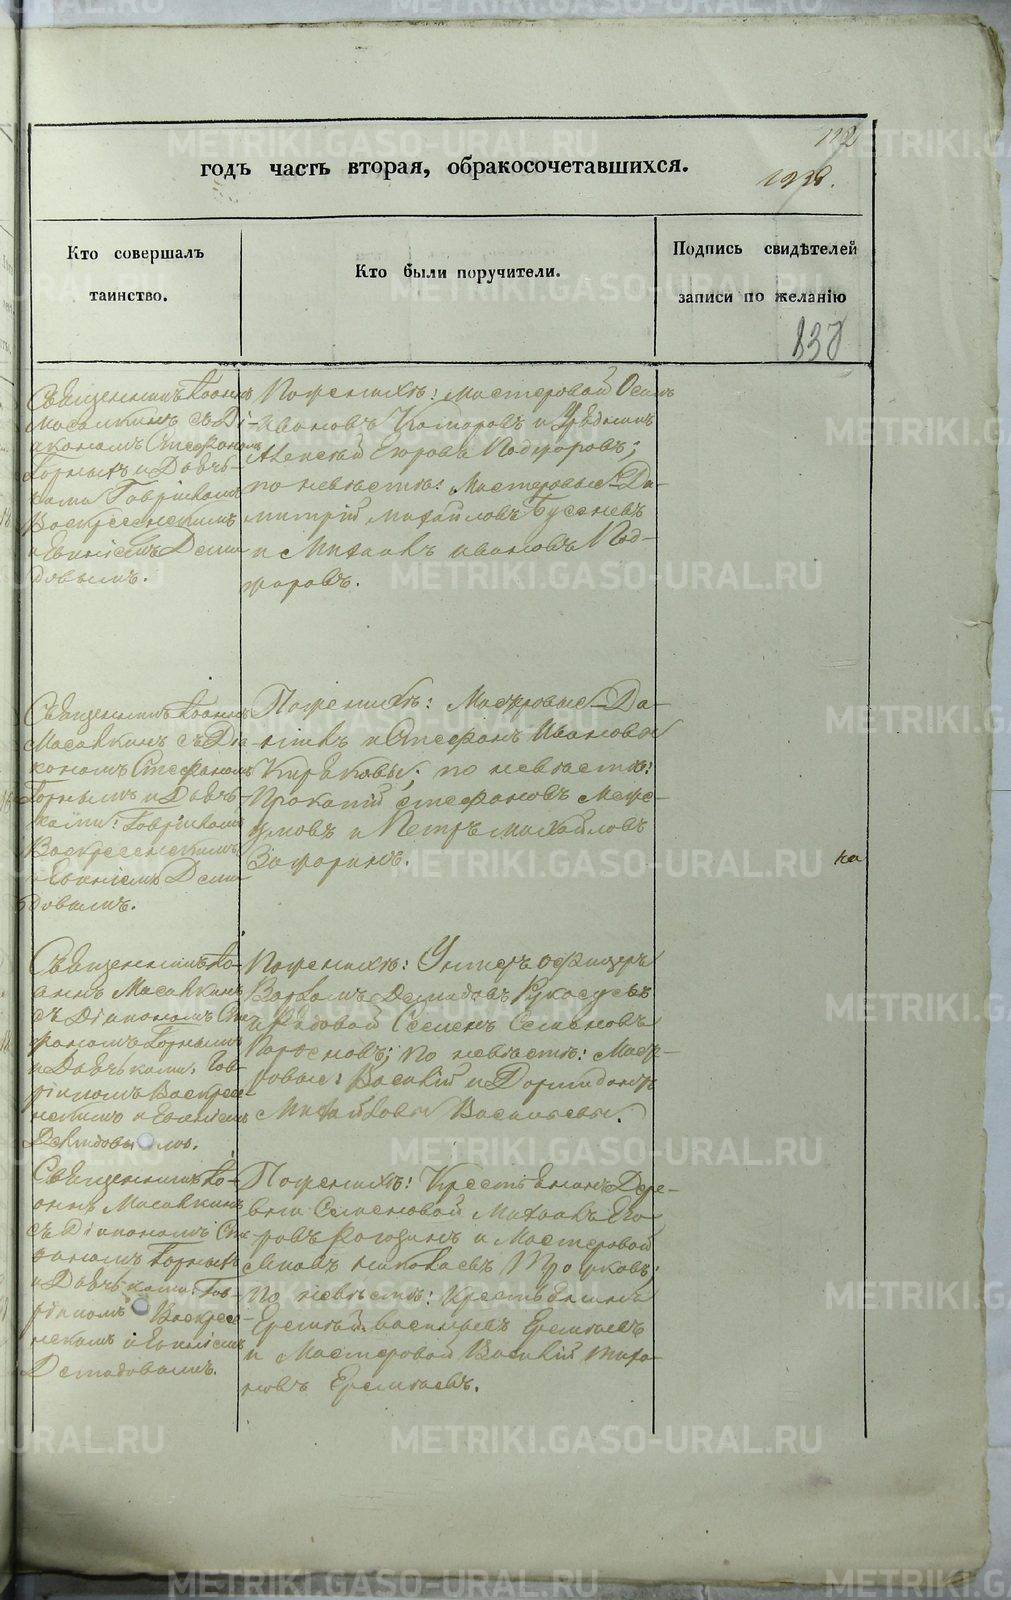 112
годъ часть вторая, обракосочетавшихся.
1938.
Кто совершалъ
таинство.
Кто были поручители.
Подпись свидѣтелей
записи по желанію
838
Священникъ Іоаннъ
Масалкинъ съ Ді-
акономъ Стефаномъ
Горнымъ и Дьячь-
ками Гавріиломъ
Воскресенскимъ
и Евгеніемъ Деми
довымъ.
По женихѣ: мастеровой Осипъ
Ивановъ Каторовъ и
Алексѣй Егоровъ
по невѣстѣ: Мастеровые Ди-
митрій Михайловъ
и Михаилъ Ивановъ Под-
Священникъ Іоаннъ
Масалкинъ съ Діа
кономъ Стефаномъ
Горнымъ и Дьячь-
ками: Гавріиломъ
Воскресенскимъ
и Евгеніемъ Деми
довымъ.
По женихѣ: Мастеровые Да-
и Стефанъ Ивановы
по невѣстѣ:
Прокопій Стефановъ
и Петръ Михайловъ
на
Священникъ Іо-
аннъ Масалкинъ
съ Діакономъ Сте
фаномъ Горнымъ
и Дьячьками: Гав-
ріиломъ Воскресе-
нскимъ и Евгеніемъ
Демидовымъ.
По женихѣ: Унтеръ офицеръ
Варламъ Демидовъ Рукосуевъ
и Рядовой Семенъ Семеновъ
по невѣстѣ: Масте-
ровые: Василій и Доримедонтъ
Михайловы Васильевы.
Священникъ Іо-
аннъ Масалкинъ
съ Діакономъ Сте
фаномъ Горнымъ
и Дьячьками: Гав-
ріиломъ Воскресе-
нскимъ и Евгеніемъ
Демидовымъ.
По женихѣ: Крестьянинъ Дере-
вни Семеновой Михаилъ Его
ровъ Рогозинъ и Мастеровой
Николаевъ
По невѣстѣ: Крестьянинъ
Еремѣй Васильевъ Еремѣевъ
и Мастеровой Василій Тихо
новъ Еремѣевъ.
METRIKI.GASO-URAL.RU